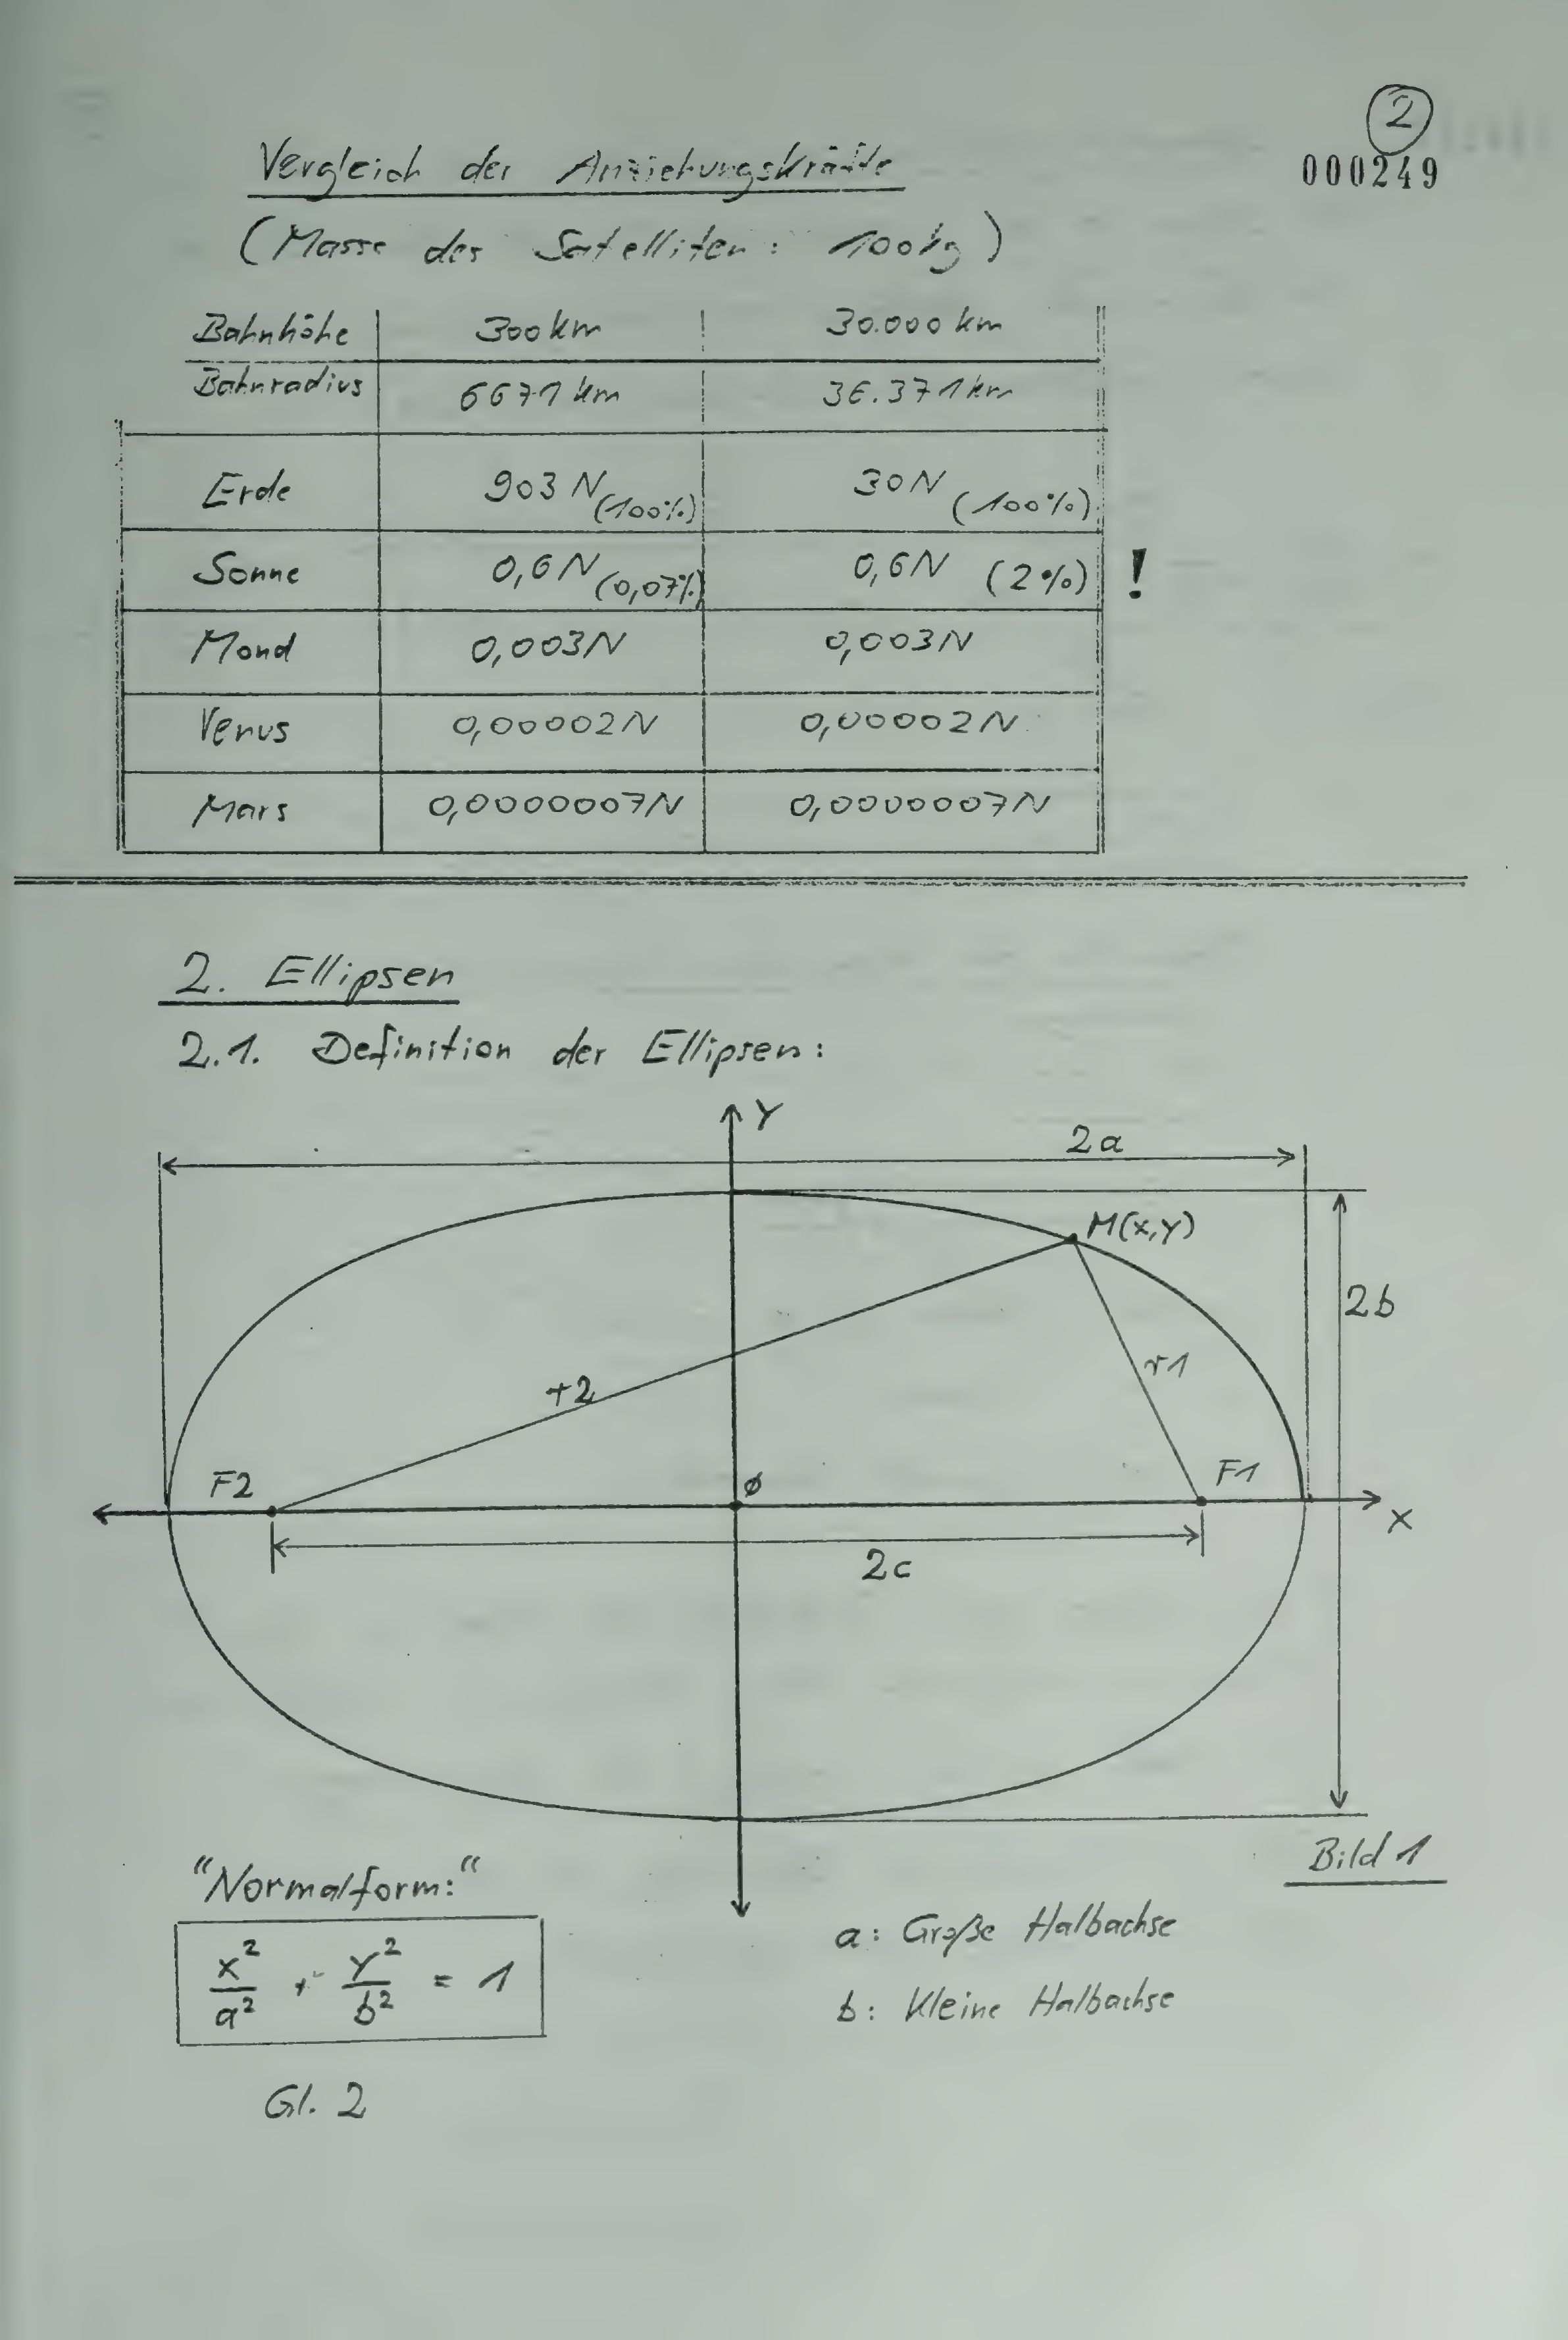 2
000249
Vergleich der Anziehungskräfte
(Masse des Satelliten: 100kg)
Bahnhöhe 300km 30.000 km
Bahnradius 6671km 36.371km
Erde 903 N (100%) 30N (100%)
Sonne 0,6N (0,07%) 0,6N (2%) !
Mond 0,003N 0,003N
Venus 0,00002N 0,00002N
Mars 0,0000007N 0,0000007N
2. Ellipsen
2.1. Definition der Ellipsen:
Y
2a
M(x,y)
2b
r1
r2
F2 ø F1
X
2c
Bild 1
"Normalform:"
x²/a² + y²/b² = 1
a: Große Halbachse
b: Kleine Halbachse
Gl. 2